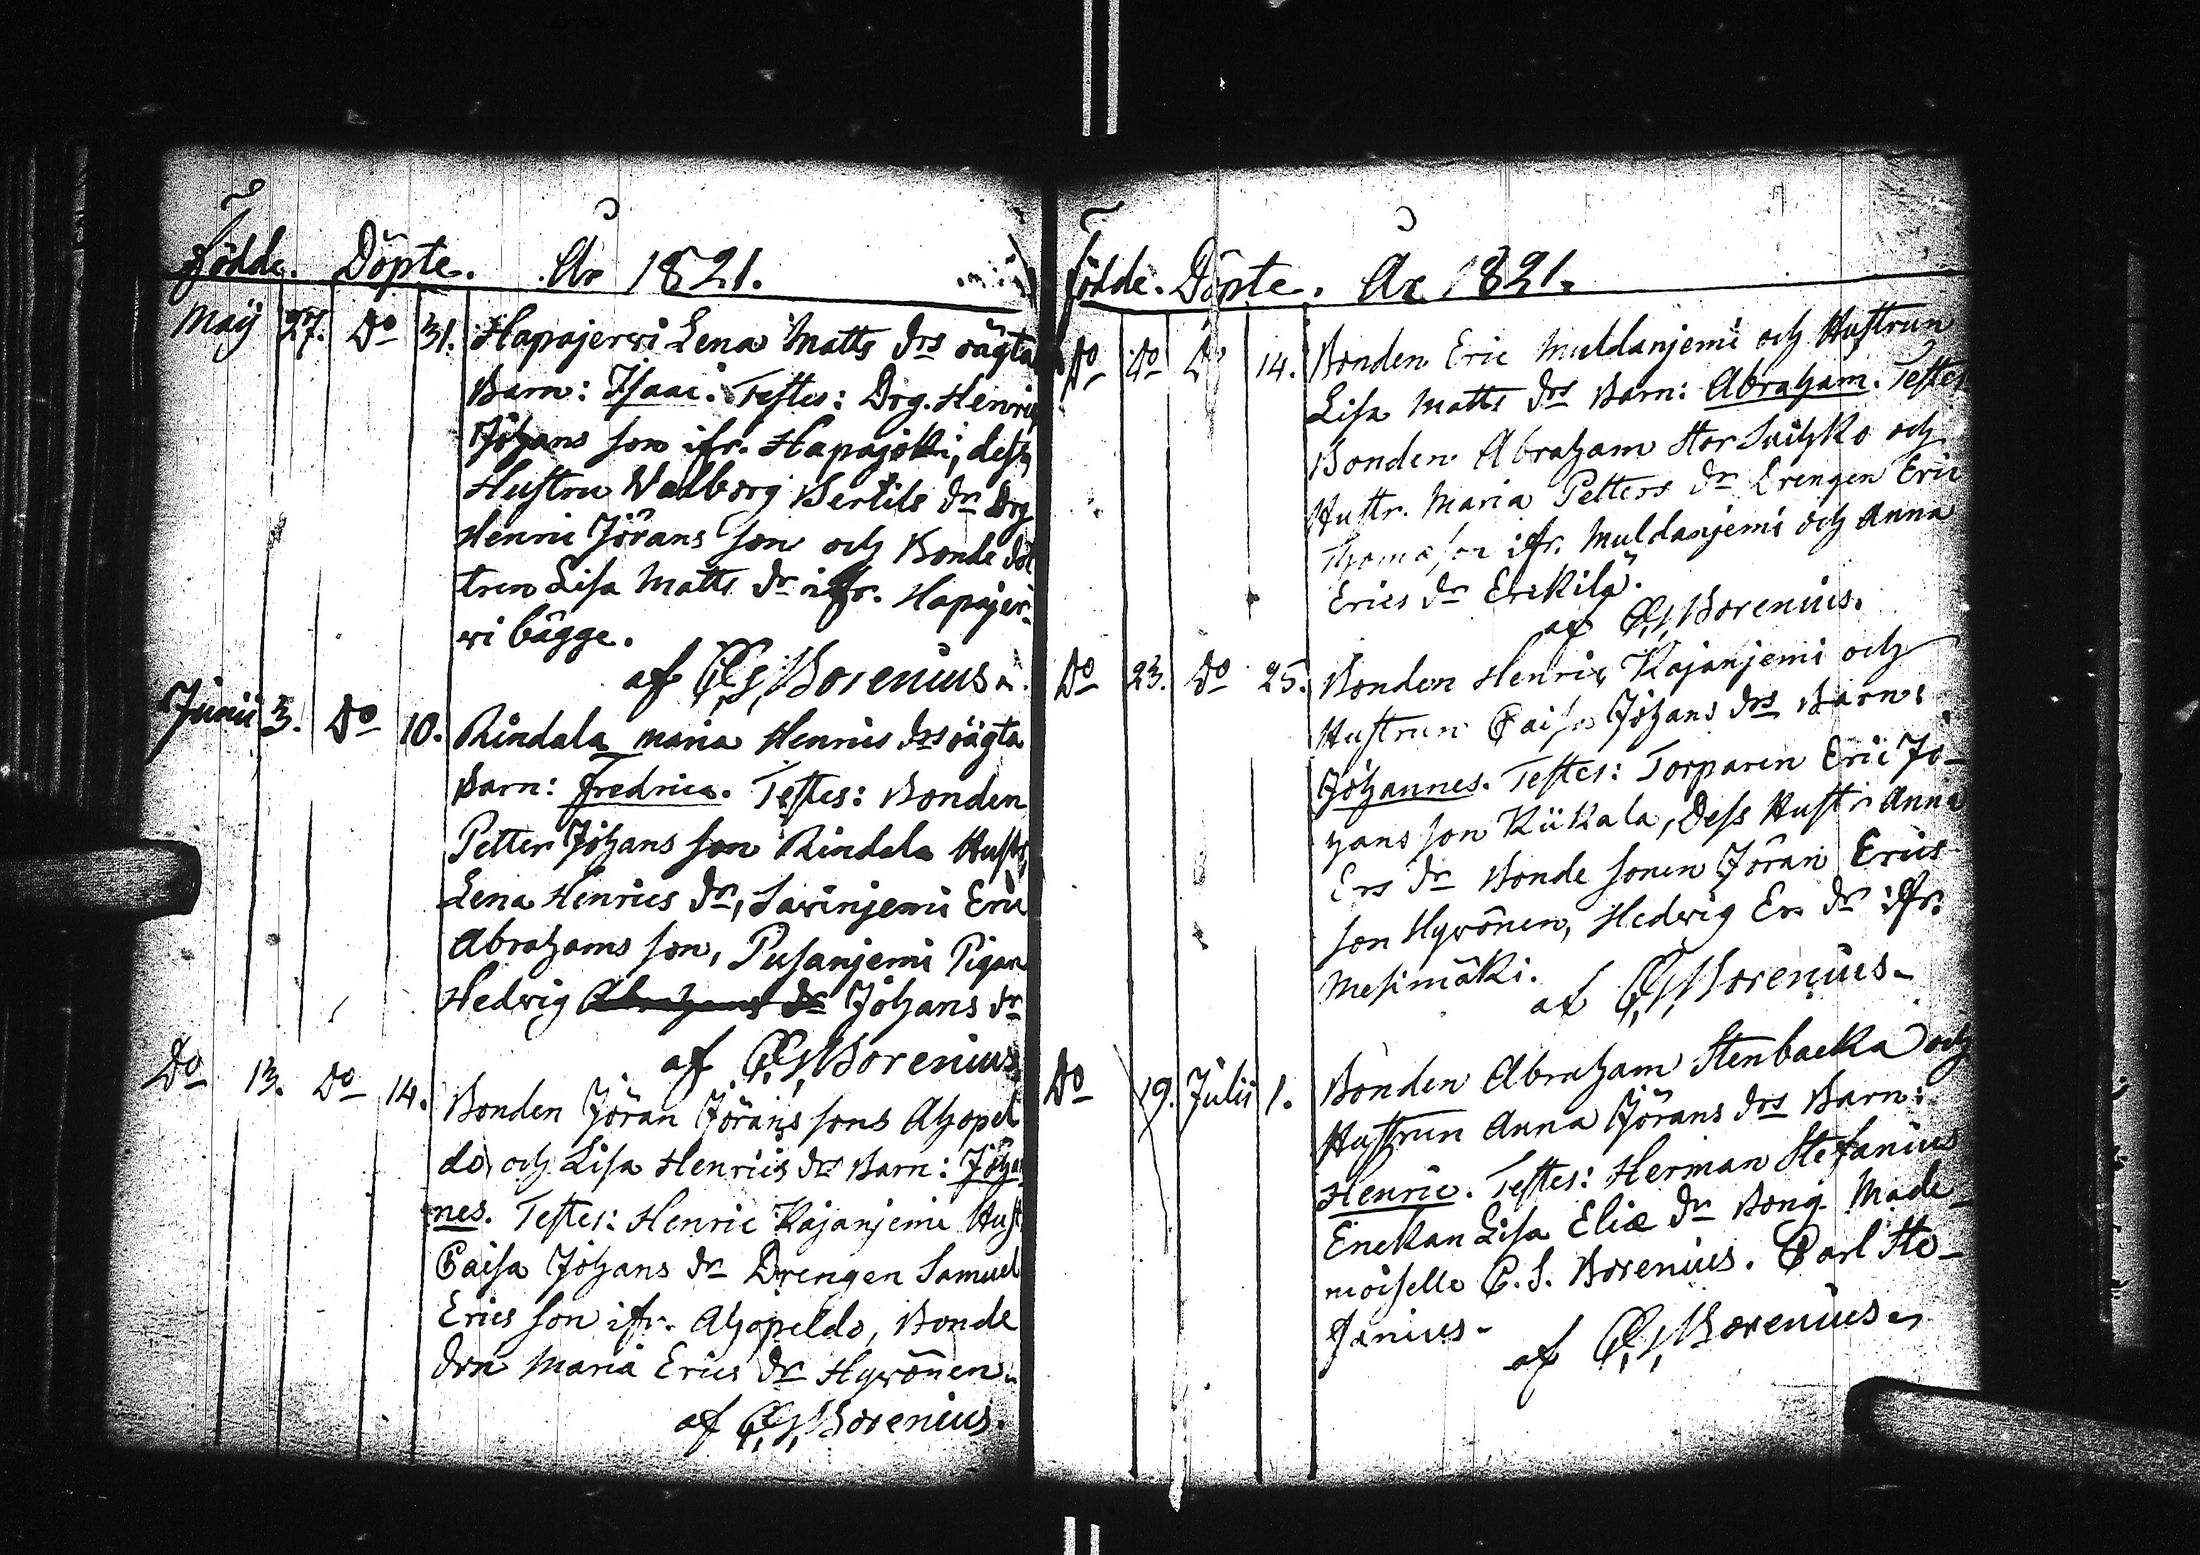 Födde. Döpte. År 1821.
Maÿ 27. Do 31. Hapajerwi Lena Matts drs oägta
Barn: Isaac. Testes: Drg. Henric
Johans son ifr. Hapajoki, dess
Hustru Walborg Bertils dr Drg
Henric Jörans son och Bonde dot
tren Lisa Matts dr ifr. Hapajer-
wi bägge.
af Borenius.
Junii 3. Do 10. Rindala Maria Henrics drs oägta
Barn: Fredrica. Testes: Bonden
Petter Johans son Rindala Hustr.
Lena Henrics dr, Sarinjemi Eric
Abrahams son, Pusanjemi Pigan
Hedwig Abrahams dr Johans dr
af Borenius.
Do 13. Do 14. Bonden Jöran Jörans sons Ahopel
do och Lisa Henrics drs Barn: Johan
nes. Testes: Henric Kajanjemi Hust
Caisa Johans dr Drengen Samuel
Erics son ifr. Ahopeldo, Bonde
dren Maria Erics dr Hyvönen.
af Borenius.
Födde. Döpte. År 1821.
Do Do Do 14. Bonden Eric Muldanjemi och Hustrun
Lisa Matts drs Barn: Abraham. Testes
Bonden Abraham Stor Suihko och
Hustr. Maria Petters dr Drengen Eric
Thomæson ifr. Muldanjemi och Anna
Erics dr Erkilä.
af Borenius.
Do 23. Do 25. Bonden Henric Kajanjemi och
Hustrun Caisa Johans drs Barn:
Johannes. Testes: Torparen Eric Jo-
hans son Kükala, Dess Hustr Anna
Ers dr Bonde sonen Jöran Erics
son Hyvönen, Hedwig Ers dr ifr.
Mesimäki.
af Borenius.
Do 19. Julii 1. Bonden Abraham Stenbacka och
Hustrun Anna Jörans drs Barn:
Henric. Testes: Herman Stefanius
Enckan Lisa Eliæ dr Bong. Made-
moiselle C. S. Borenius. Carl Ste-
fanius.
af Borenius.